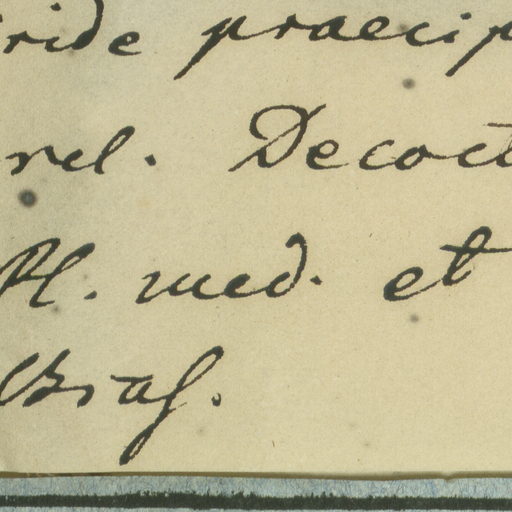 ride praecip
rel. Decoct
Pl. med. et
Bras.